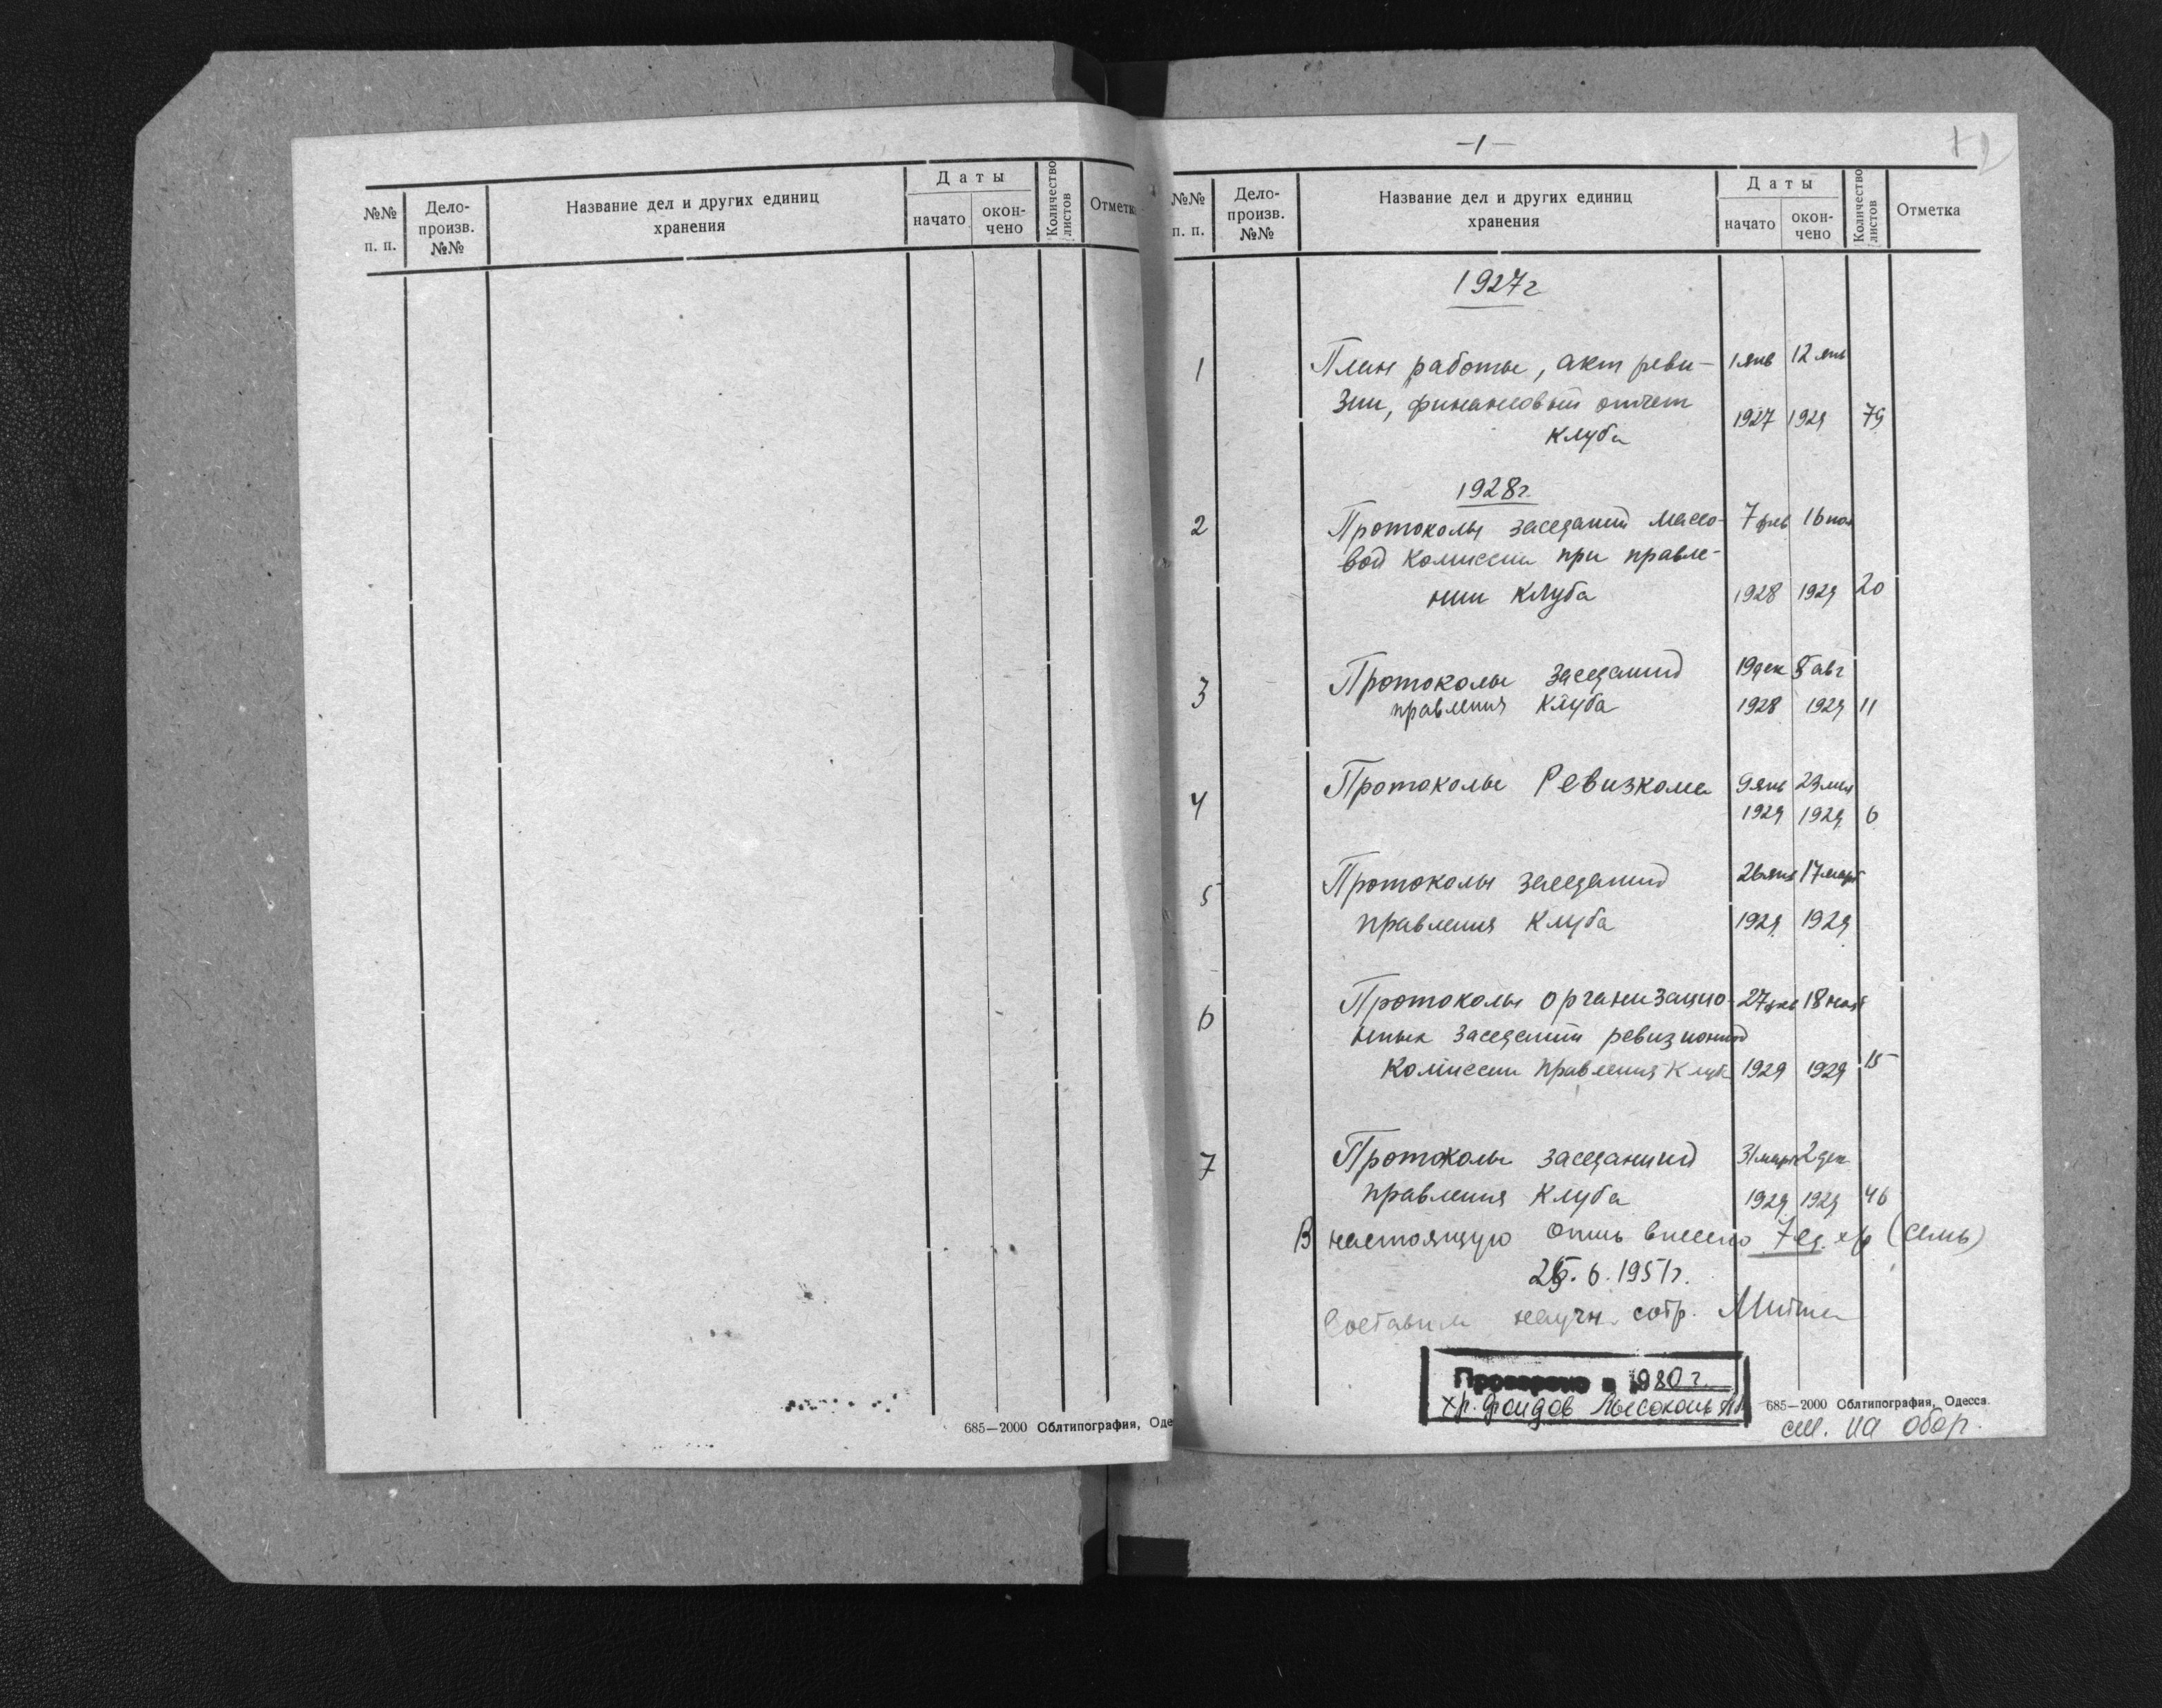 №№ п. п.
Дело-произв. №№
Название дел и других единиц
хранения
Даты
начато
окон-чено
Количество листов
Отметк
685—2000 Облтипография, Оде
—1—
№№ п. п.
Дело-произв. №№
Название дел и других единиц
хранения
Даты
начато
окон-чено
Количество листов
Отметка
1927г
1 План работы, акт реви- 1 янв 12 янв
зии, финансовый отчет 1927 1929 79
клуба
1928г.
2 Протоколы заседаний массо- 7 фев 16 ноя
вой комиссии при правле-
нии клуба 1928 1929 20
3 Протоколы заседаний 19 дек 8 авг
правления клуба 1928 1929 11
4 Протоколы Ревизкома 9 янв 23 мая
1929 1929 6
5 Протоколы заседаний 26 янв 17 март
правления клуба 1929 1929
6 Протоколы организацио- 27 18 нояб
нных заседаний ревизионной
комиссии правления клуба 1929 1929 15
7 Протоколы заседаний 31 март 2 дек
правления клуба 1929 1929 46
В настоящую опись внесено 7 ед. хр (семь)
6. 1951г.
Составил научн. сотр.
Проверено в 1980 г.
хр. фондов
685—2000 Облтипография, Одесса.
см. на обор.